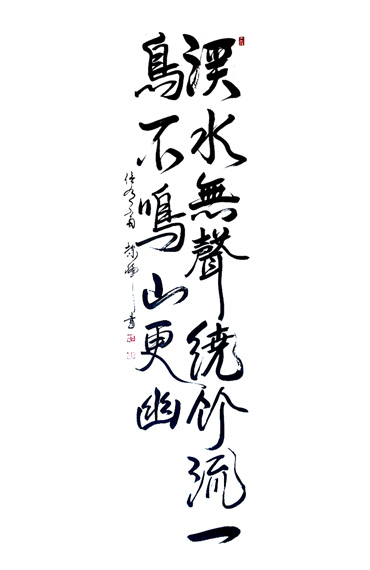 溪水無聲繞竹流一
鳥不鳴山更幽